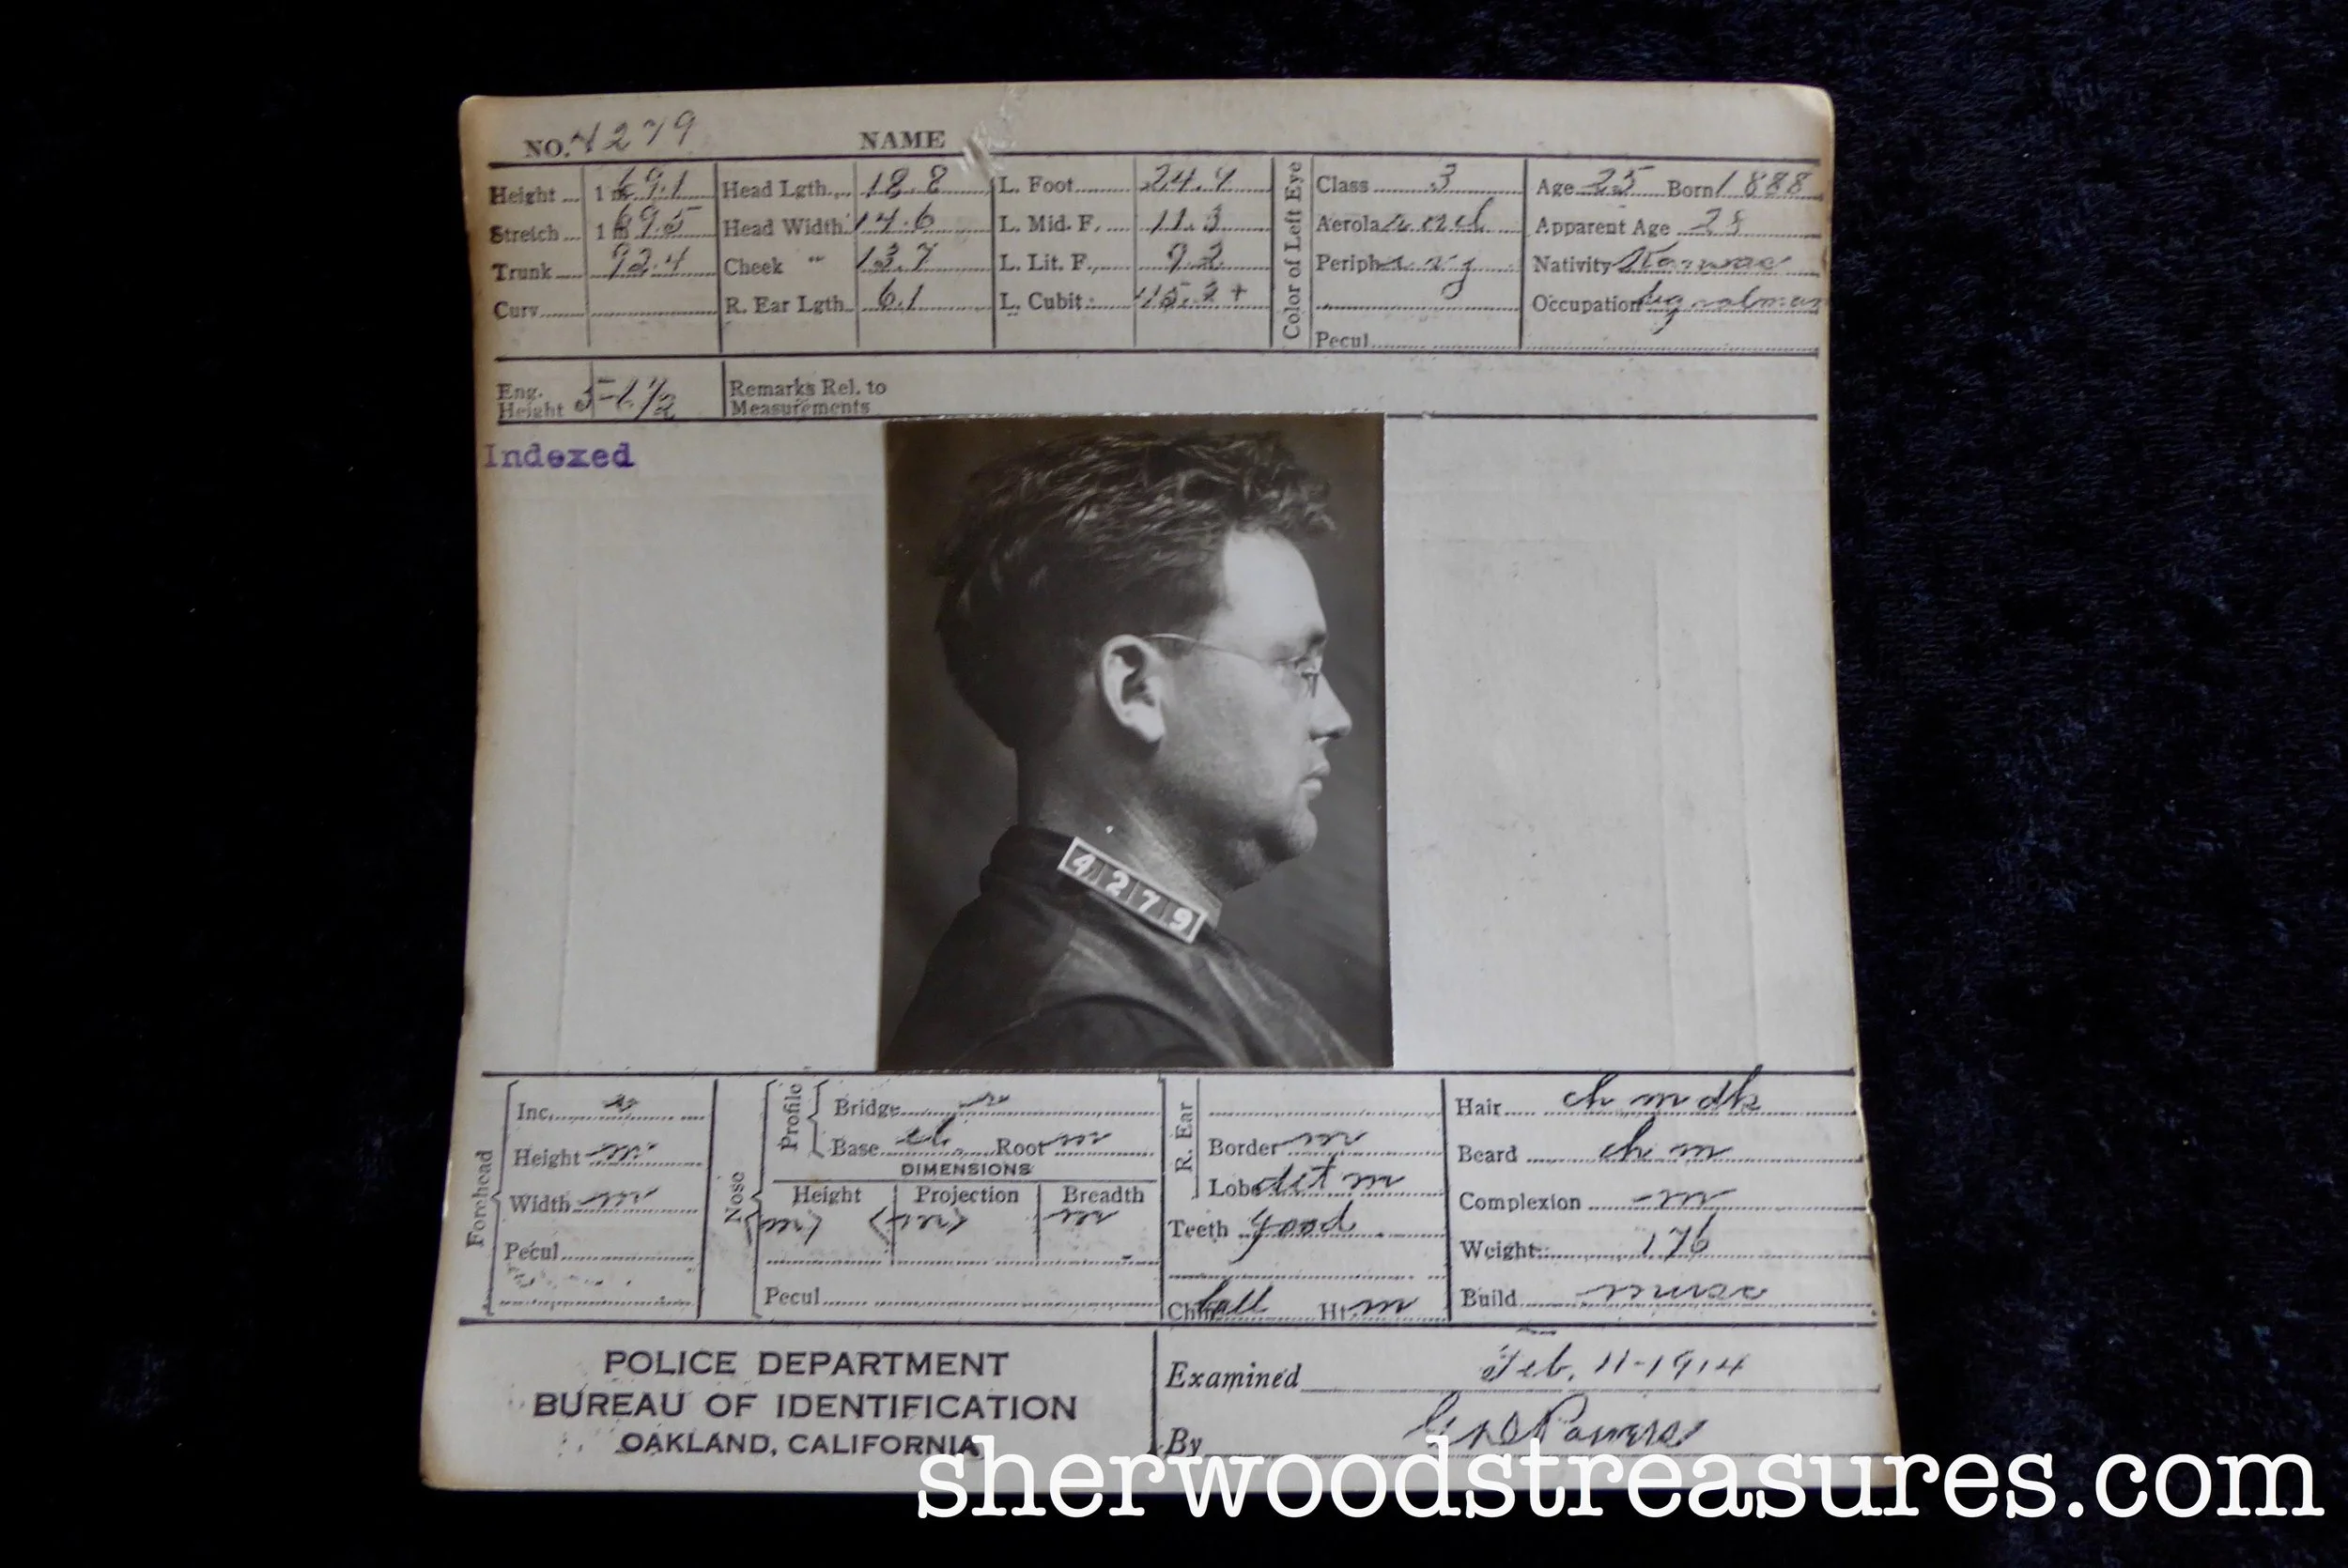 NO. 4279 NAME
Height 1 m 69.1 Head Lgth. 18.8 L. Foot 24.4 Class 3 Age 25 Born 1888
Stretch 1 m 69.5 Head Width 14.6 L. Mid. F. 11.3 Aerola Apparent Age
Trunk 92.4 Cheek " 13.7 L. Lit. F. 9.2 Periph Nativity
Curv. R. Ear Lgth. 6.1 L. Cubit Occupation
Color of Left Eye
Pecul.
Eng. Height Remarks Rel. to
Measurements
Indexed
4279
Forehead
Inc.
Height m
Width m
Pecul.
Nose
Profile
Bridge
Base Root m
DIMENSIONS
Height Projection Breadth
Pecul.
R. Ear
Border m
Lobe det m
Teeth good
Chin ball Ht. m
Hair ch m dk
Beard ch m
Complexion m
Weight 176
Build
POLICE DEPARTMENT
BUREAU OF IDENTIFICATION
OAKLAND, CALIFORNIA
Examined Feb. 11-1914
By Powers
sherwoodstreasures.com